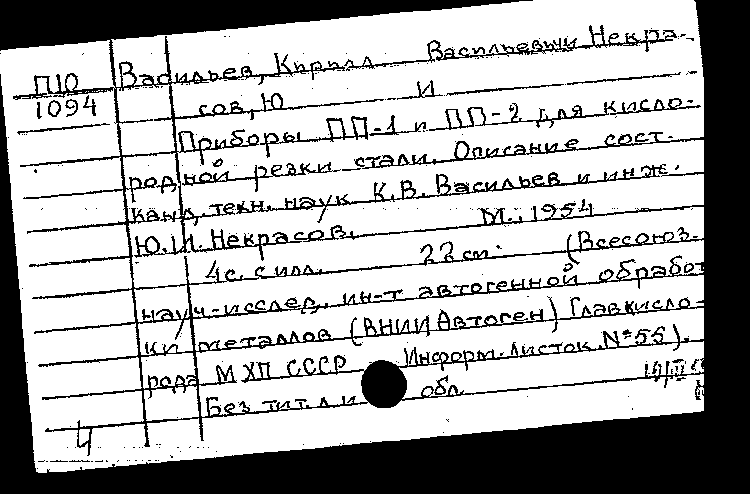 П10 Васильев, Кирилл Васильевич Некра-
1094 сов, Ю И
Приборы ПП-1 и ПП-2 для кисло-
родной резки стали. Описание сост.
канд. техн. наук К.В. Васильев и инж.
Ю.И. Некрасов. М., 1954
4 с. с илл. 22 см. (Всесоюз.
науч-исслед. ин-т автогенной обработ
ки металлов (ВНИИАвтоген) Главкисло-
рода МХП СССР Информ. листок №55).
Без тит. л и обл
4